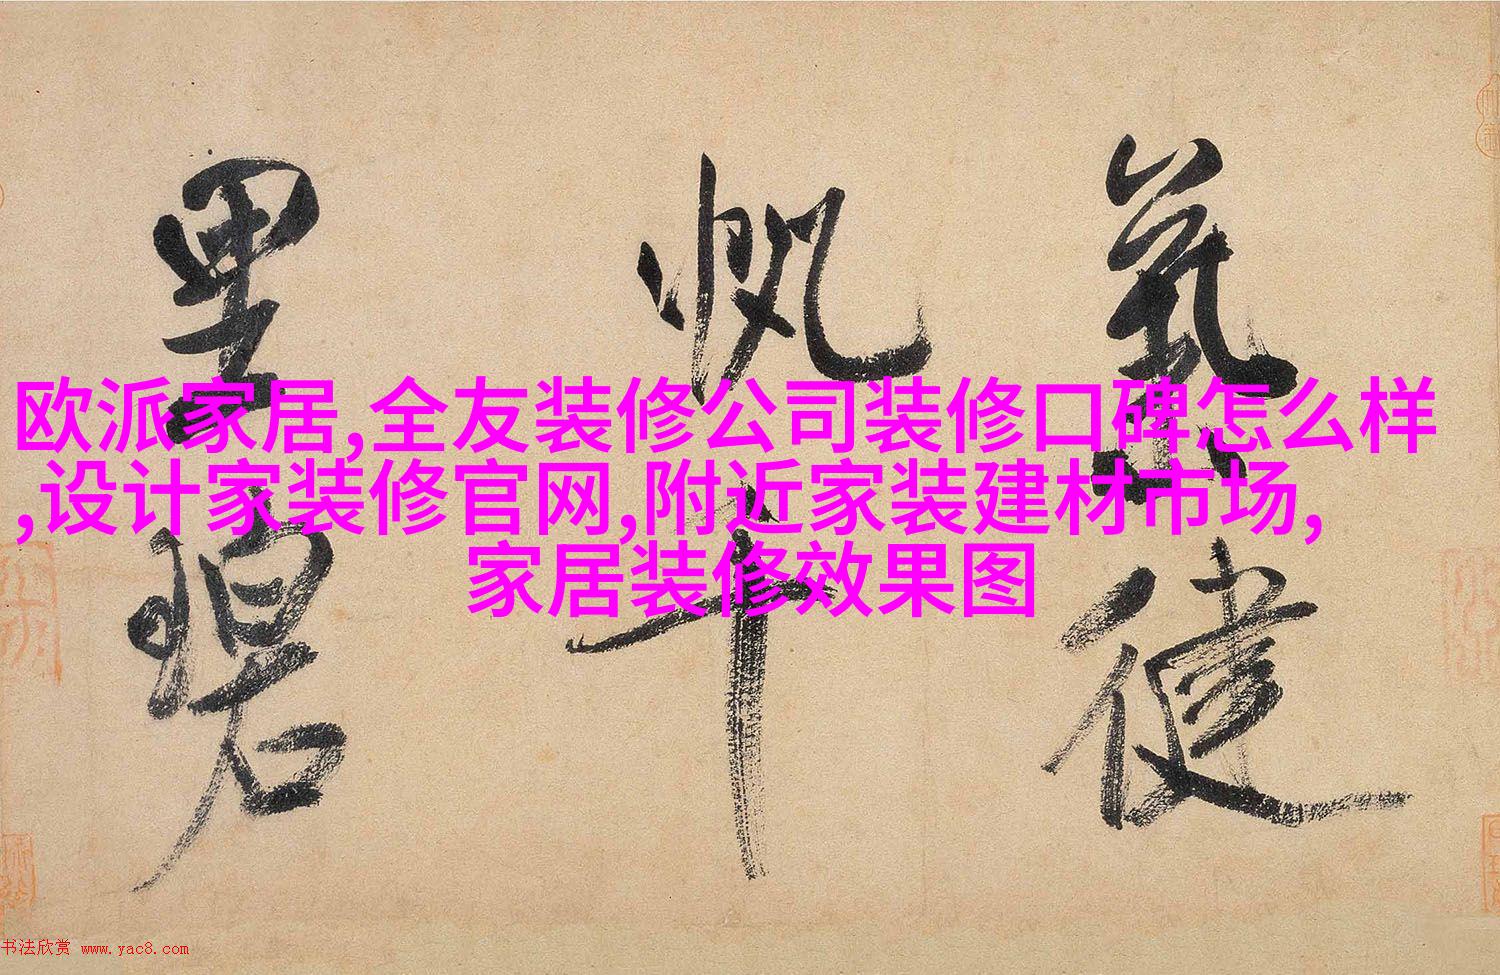 氣健
帆千
里碧
欧派家居,全友装修公司装修口碑怎么样
,设计家装修官网,附近家装建材市场,
家居装修效果图
书法欣赏 www.yac8.com